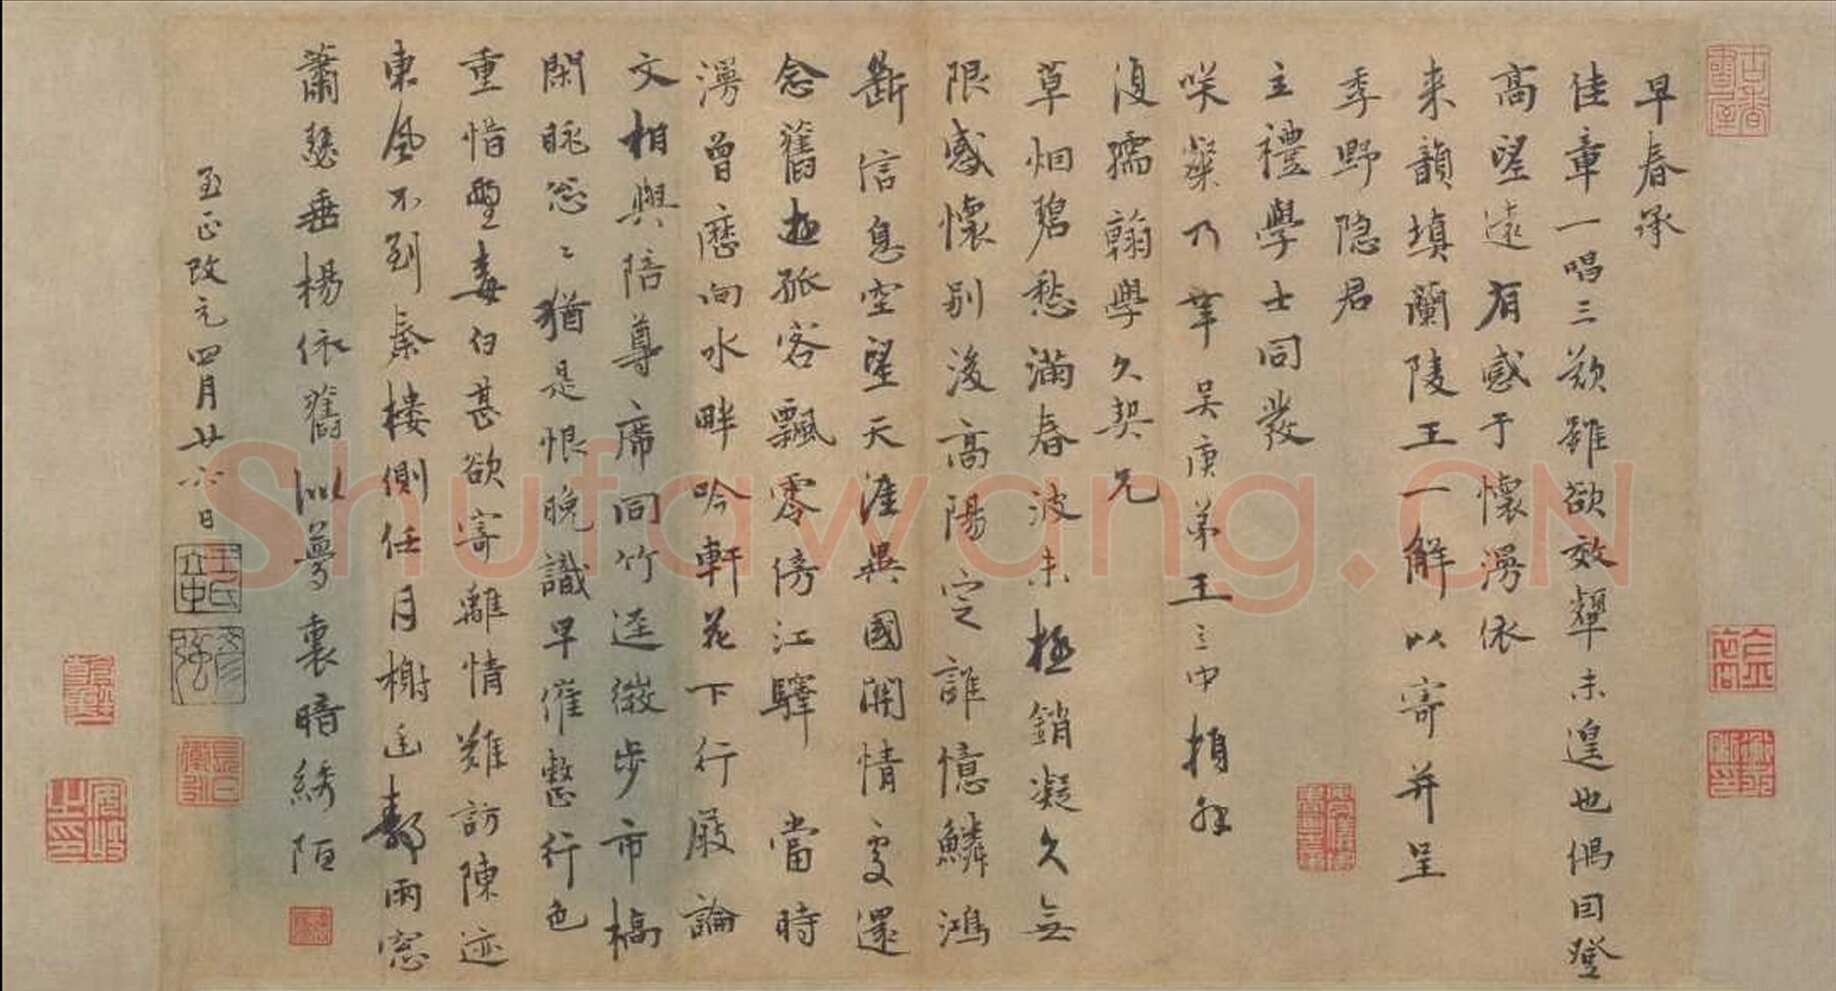 早春承
佳章一唱三歎雖欲效顰未遑也偶因登
高望遠有感于懷漫依
来韻填蘭陵王一解以寄并呈
季野隐君
主禮學士同發
咲粲乃幸吴庚弟王立中頓
復孺翰學久契兄
草烟碧愁滿春波未極銷凝久無
限感懷别後高陽定誰憶鱗鴻
斷信息空望天涯異國開情處還
念舊孤客飄零傍江驛當時
漫曾歷向水畔吟軒花下行廚論
文相與陪尊席同竹逕微步市橋
閑眺怱〻猶是恨晚識早催整行色
重惜鬢毒白甚欲寄離情難訪陳迹
東風不到秦樓側任月榭遥靜雨窓
蕭瑟垂楊依舊似夢裏暗綉陌
至正改元四月廿六日
王氏立中
彦强
Shufawang.CN